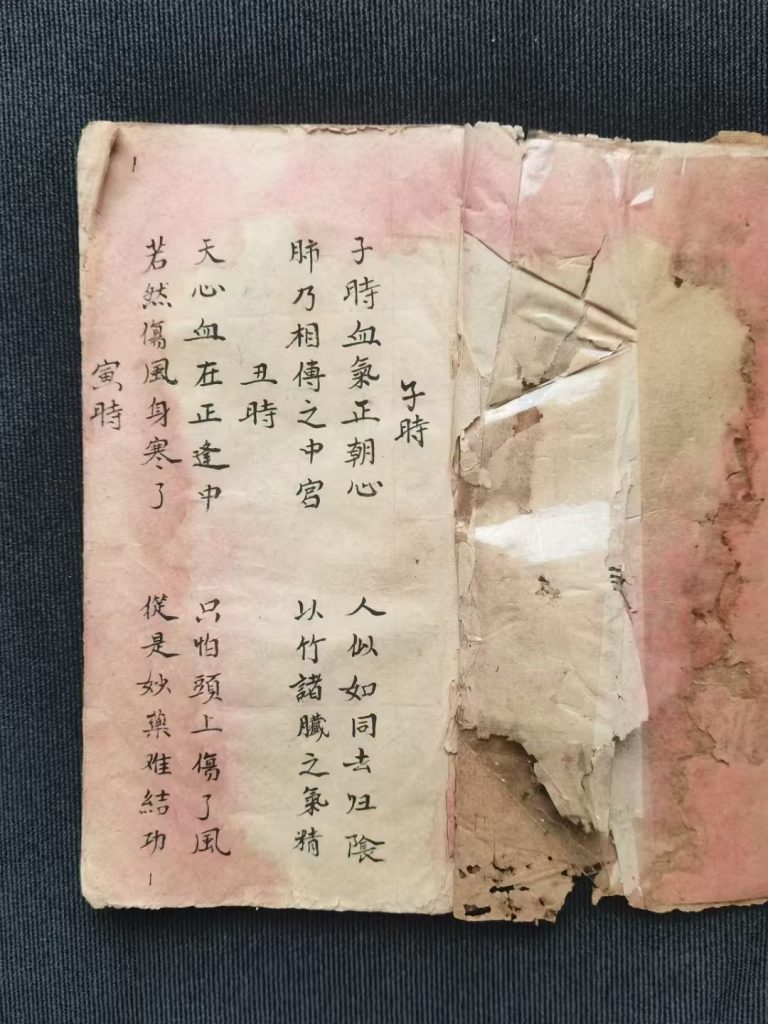 子時
子時血氣正朝心　人似如同去归陰
肺乃相傳之中宮　以竹諸臟之氣精
丑時
天心血在正逢中　只怕頭上傷了風
若然傷風身寒了　從是妙藥难結功
寅時